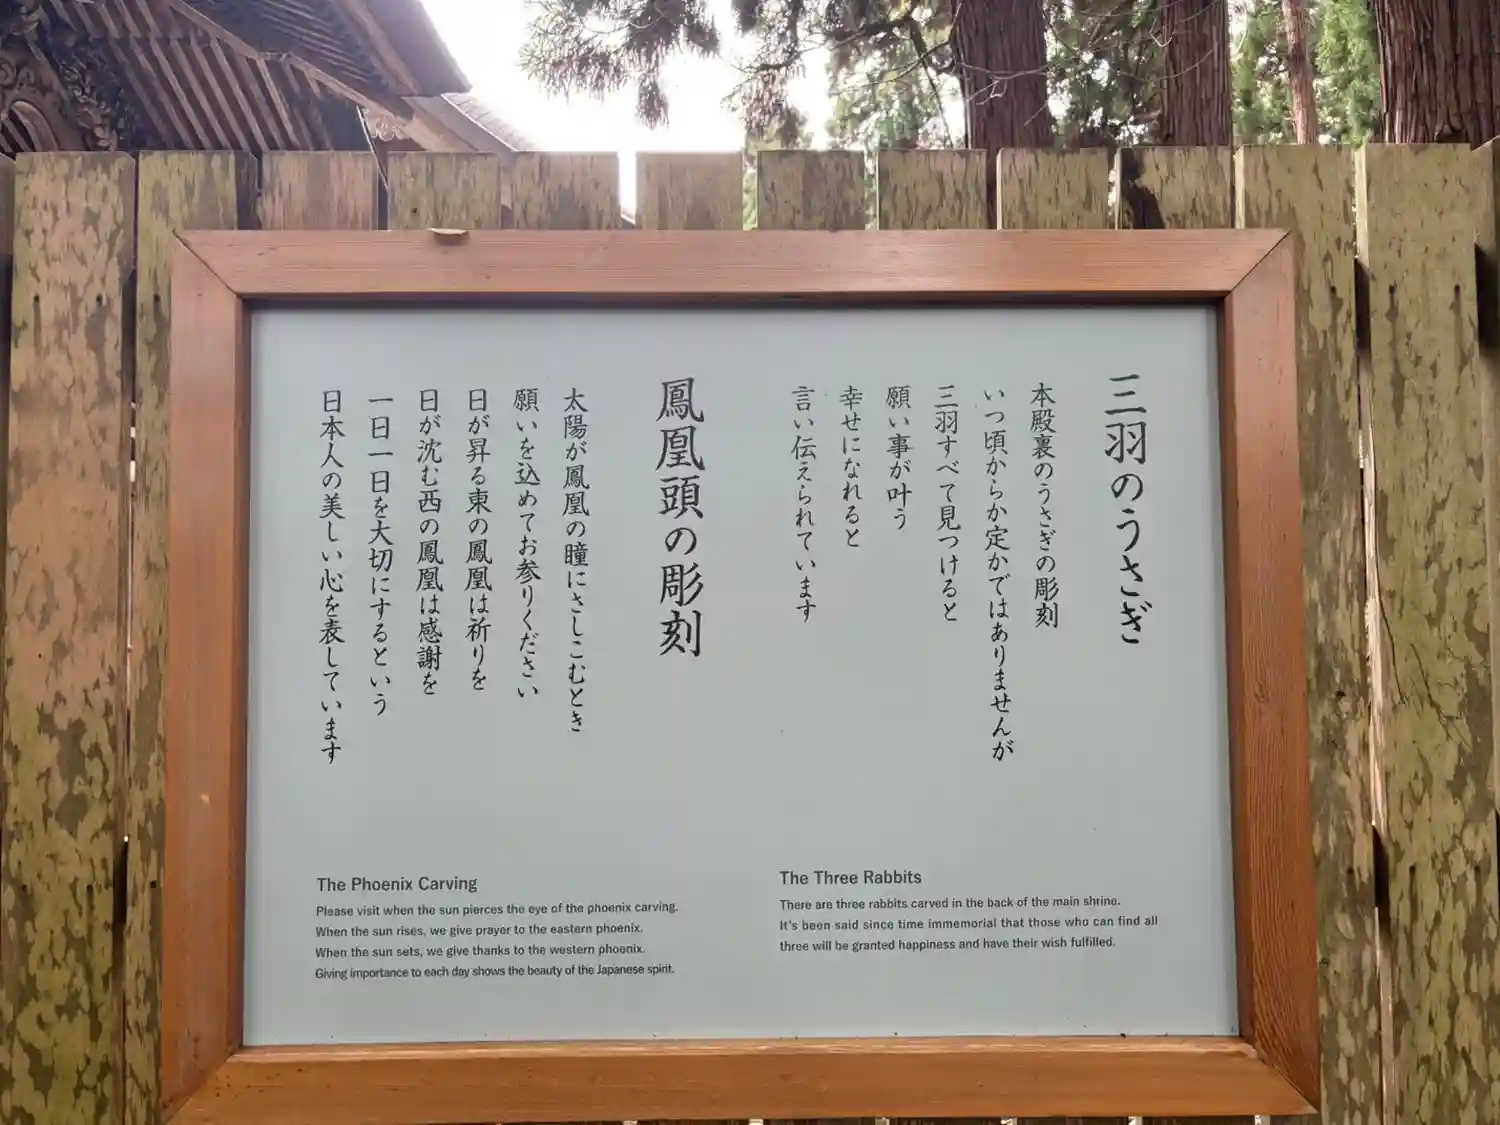 三羽のうさぎ
本殿裏のうさぎの彫刻
いつ頃からか定かではありませんが
三羽すべて見つけると
願い事が叶う
幸せになれると
言い伝えられています
鳳凰頭の彫刻
太陽が鳳凰の瞳にさしこむとき
願いを込めてお参りください
日が昇る東の鳳凰は祈りを
日が沈む西の鳳凰は感謝を
一日一日を大切にするという
日本人の美しい心を表しています
The Phoenix Carving
Please visit when the sun pierces the eye of the phoenix carving.
When the sun rises, we give prayer to the eastern phoenix.
When the sun sets, we give thanks to the western phoenix.
Giving importance to each day shows the beauty of the Japanese spirit.
The Three Rabbits
There are three rabbits carved in the back of the main shrine.
It's been said since time immemorial that those who can find all
three will be granted happiness and have their wish fulfilled.